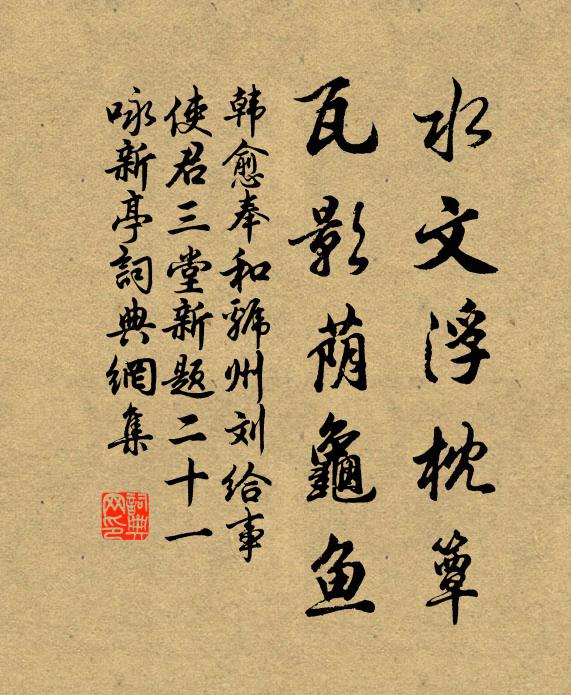 水文浮枕簟
瓦影荫龜鱼
韩愈奉和虢州刘给事
使君三堂新题二十一
咏新亭詞典網集
詞典网印